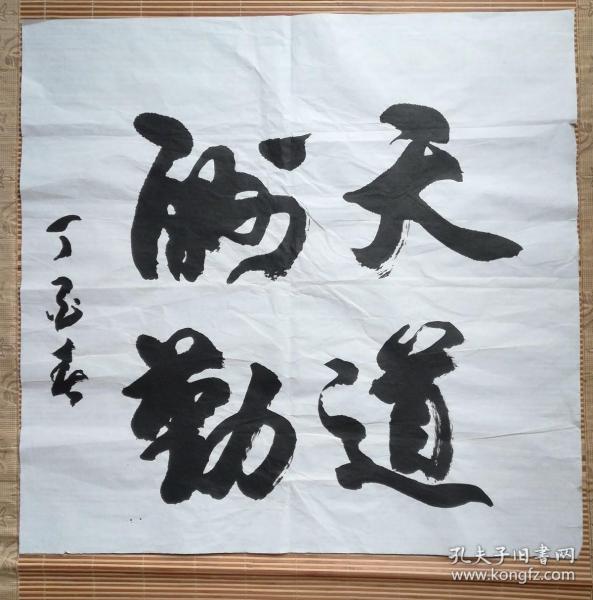 天道
酬勤
丁
春
孔夫子旧書网
www.kongfz.com